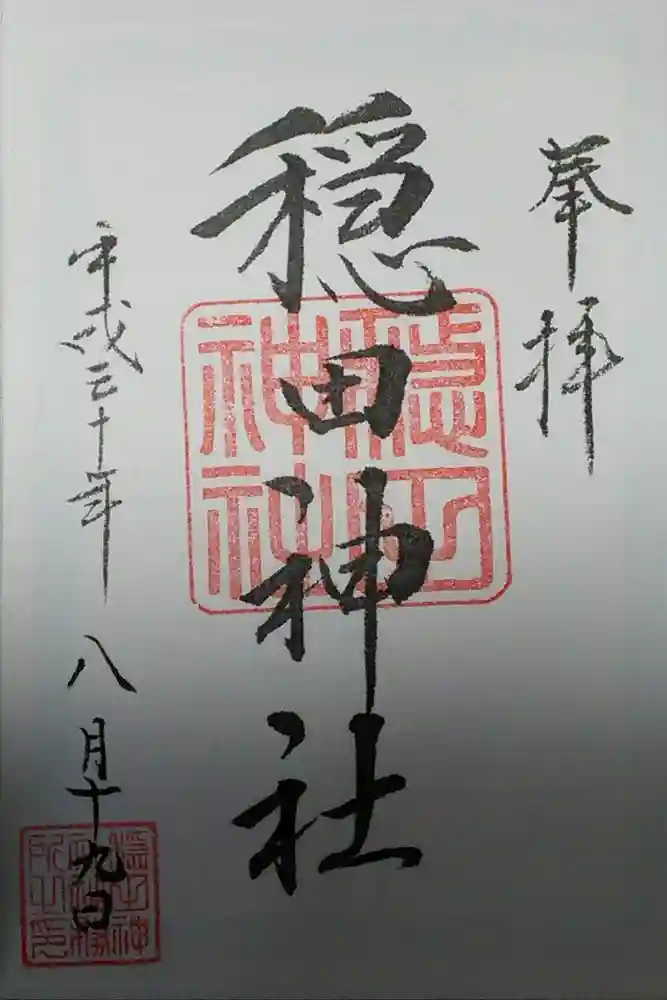 奉拝
穏田神社
平成三十年
八月十九日
穏田神社